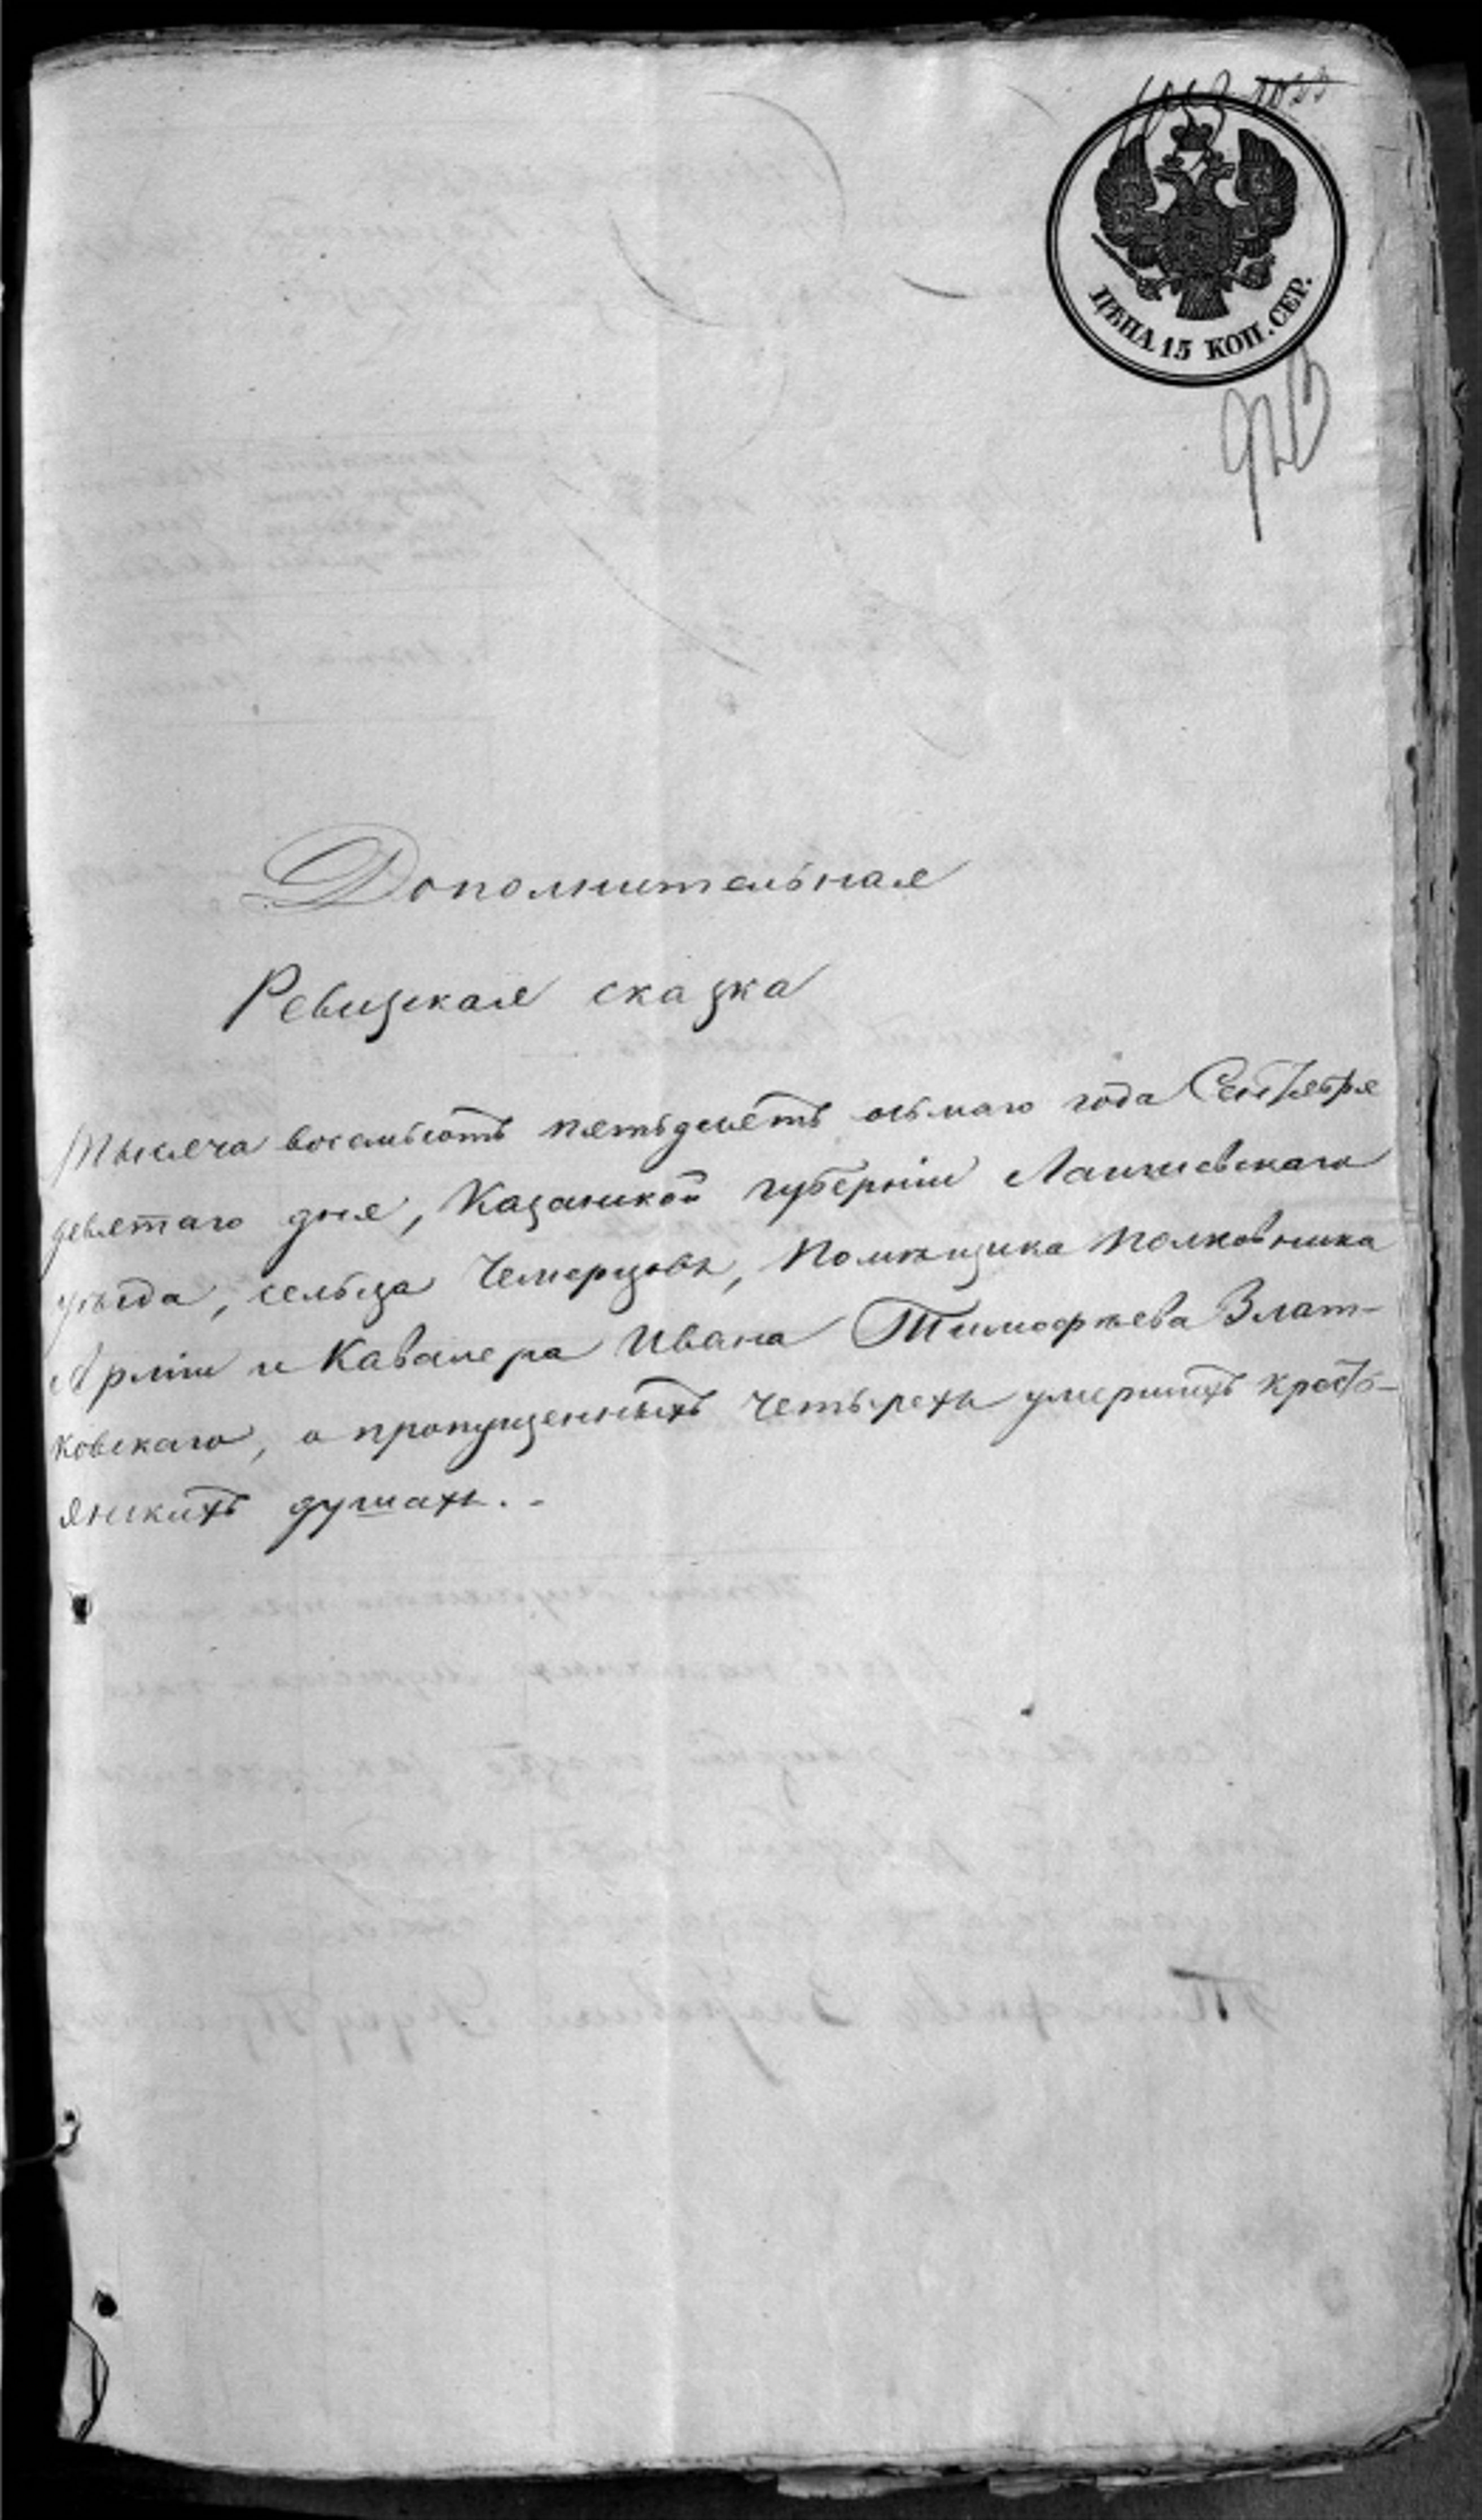 ЦѢНА 15 КОП. СЕР.
Дополнительная
Ревизская сказка
Тысяча восемьсотъ пятьдесятъ осьмаго года Сентября
девятаго дня, Казанской губерніи Лаишевскаго
уѣзда, сельца Чемерцовъ, Помѣщика Полковника
Арміи и Кавалера Ивана Тимофѣева Злат-
ковскаго, о пропущенныхъ четырехъ умершихъ кресть-
янскихъ душахъ.-